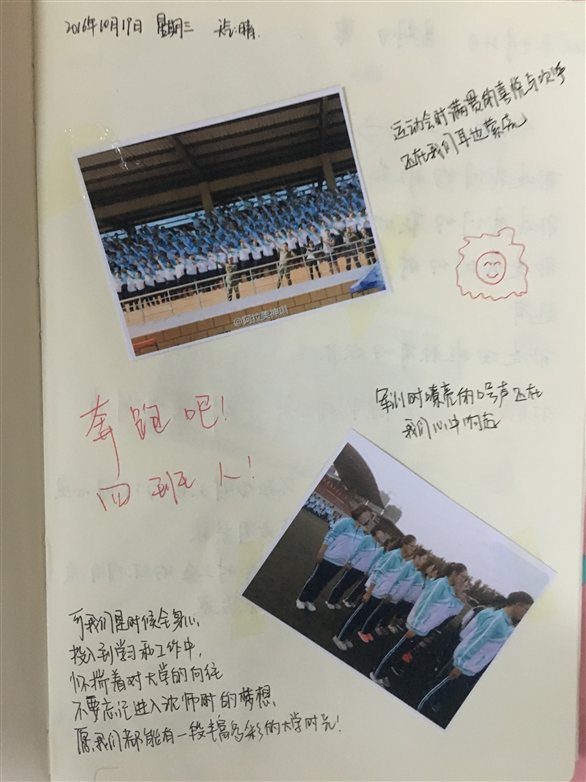 2016年10月19日 星期三 晴
运动会时满贯的喜悦与欢呼
还在我们耳边萦绕
@阿拉蕾神琪
奔跑吧!
四班人!
军训时嘹亮的口号声还在
我们心中响起
可我们是时候全身心
投入到学习和工作中,
怀揣着对大学的向往
不要忘记进入沈师时的梦想,
愿我们都能有一段丰富多彩的大学时光!